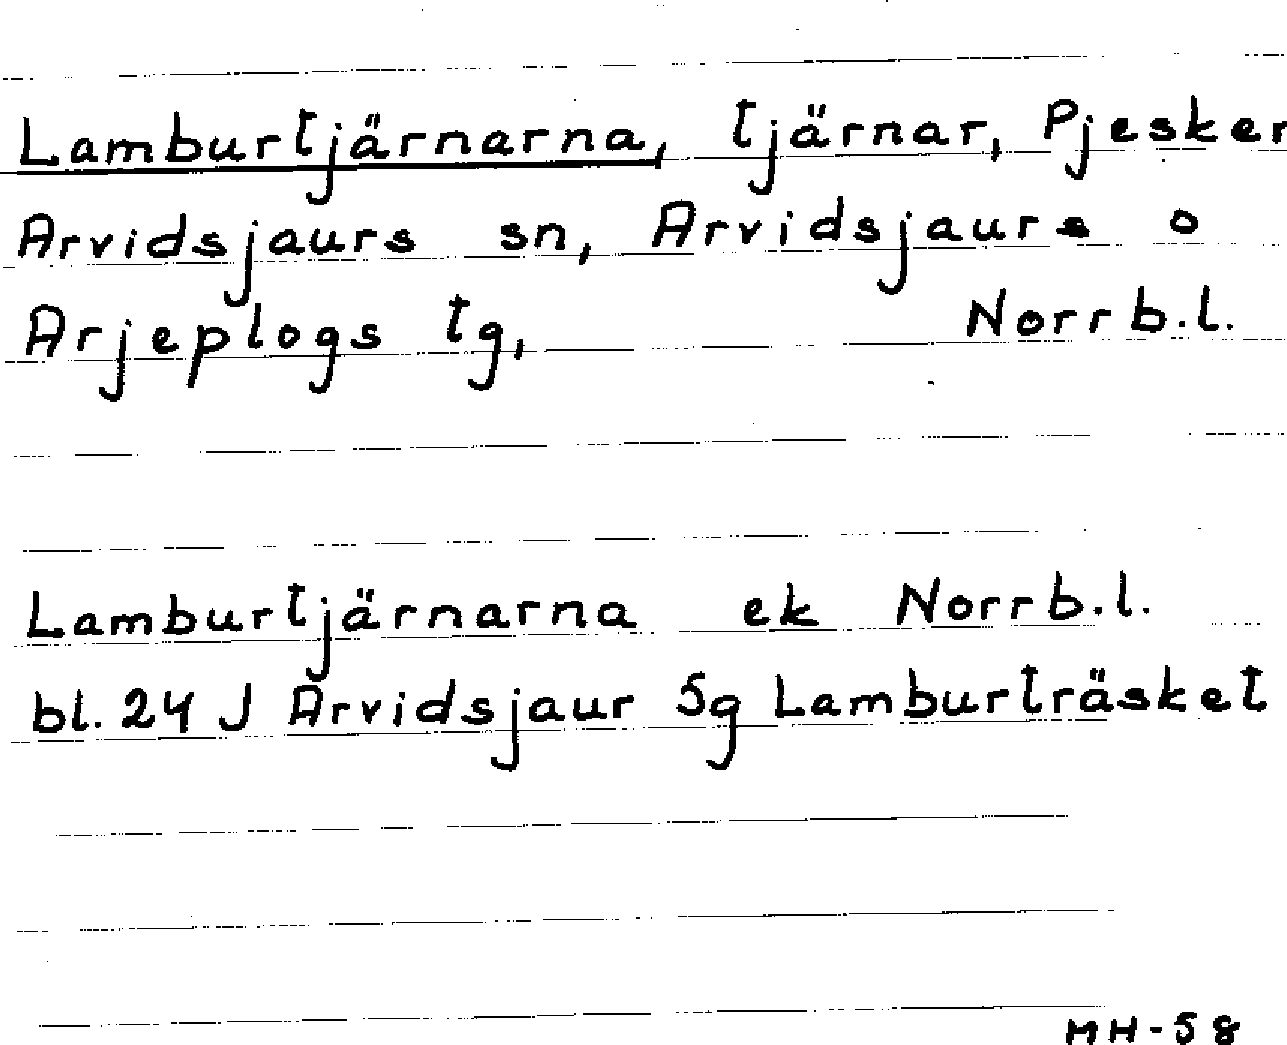 Lamburtjärnarna, tjärnar, Pjesker
Arvidsjaurs sn, Arvidsjaurs o
Arjeplogs tg, Norrb.l.
Lamburtjärnarna ek Norrb.l.
bl. 24 J Arvidsjaur 5g Lamburträsket
MH-58